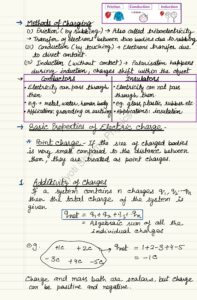 Friction Conduction Induction
→ Methods of Charging:
(i) Friction (by rubbing) → Also called triboelectricity.
• Transfer of electrons between two bodies due to rubbing.
(ii) Conduction (by touching) → Electrons transfer due to direct contact.
(iii) Induction (without contact) → Polarisation happens during induction, charges shift within the object
Conductors
• Electricity can pass through them
• e.g → metal, water, human body
• Application: grounding or earthing
Insulators
• Electricity can not pass through them
• e.g → glass, plastic, rubber etc
• Applications: insulation
→ Basic Properties of Electric charge.
Point charge - If the size of charged bodies is very small compared to the distance between them, they are treated as point charges.
1. Additivity of Charges
If a system contains n charges q₁, q₂ ... qₙ then the total charge of the system is given
= algebraic sum of all the individual charges
eg.
+1C +2C
-3C +4C -5C
qnet = 1+2-3+4-5
= -1C
Charge and mass both are scalars, but charge can be positive and negative.